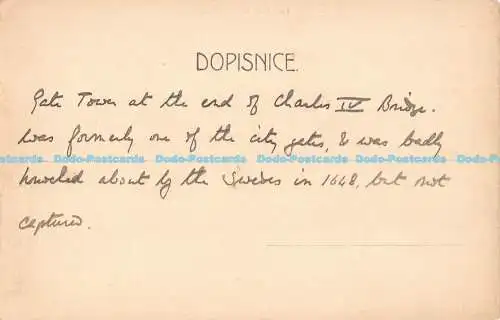 DOPISNICE.
Gate Tower at the end of Charles IV Bridge.
Was formerly one of the city gates, & was badly
Dodo-Postcards Dodo-Postcards Dodo-Postcards Dodo-Postcards Dodo-Postcards
about by the Swedes in 1648, but not
captured.